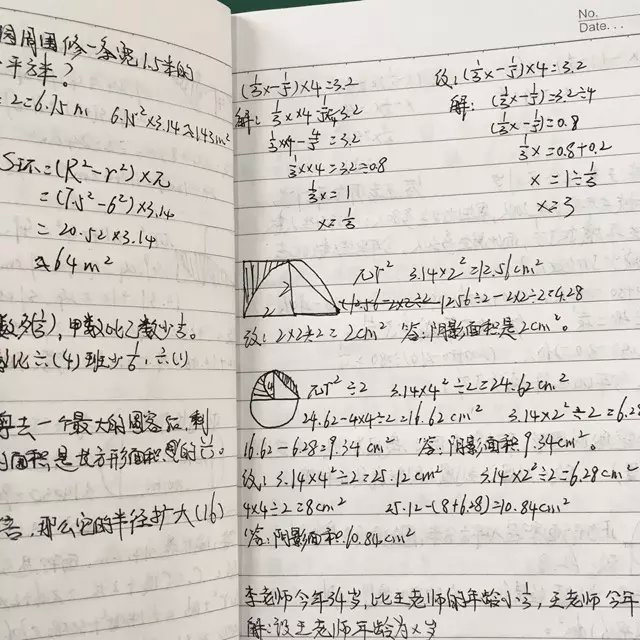 园周围修一条宽1.5米的
平方米?
2=6.75m 6.75²×3.14≈143m²
S环=(R²-r²)×π
=(7.5²-6²)×3.14
=20.52×3.14
≈64m²
甲数比乙数少
比六(4)班少1/6,六(1)
去一个最大的圆客后,剩
面积是长方形面积的
那么它的半径扩大(16)
No.
Date...
(1/3x-1/5)×4=3.2
解:
1/3x×4-4/5=3.2
1/3x=1
x=1/3
改:(1/3x-1/5)×4=3.2
解:(1/3x-1/5)=3.2÷4
(1/3x-1/5)=0.8
1/3x=0.8+0.2
x=1÷1/3
x=3
2
2
πr² 3.14×2²=12.56cm²
12.56÷2-2×2÷2=4.28
改:2×2÷2=2cm² 答:阴影面积是2cm²。
4
πr²÷2 3.14×4²÷2=24.62cm²
24.62-4×4÷2=16.62cm² 3.14×2²÷2=6.28
16.62-6.28=9.34cm² 答:阴影面积9.34cm²。
改:3.14×4²÷2=25.12cm² 3.14×2²÷2=6.28cm²
4×4÷2=8cm² 25.12-(8+6.28)=10.84cm²
答:阴影面积10.84cm²
李老师今年34岁,比王老师的年龄小1/3,王老师今年
解:设王老师年龄为x岁